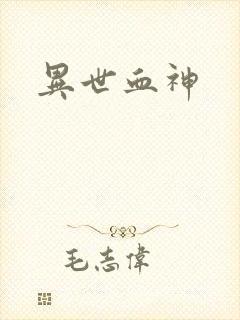 異世血神
毛志偉